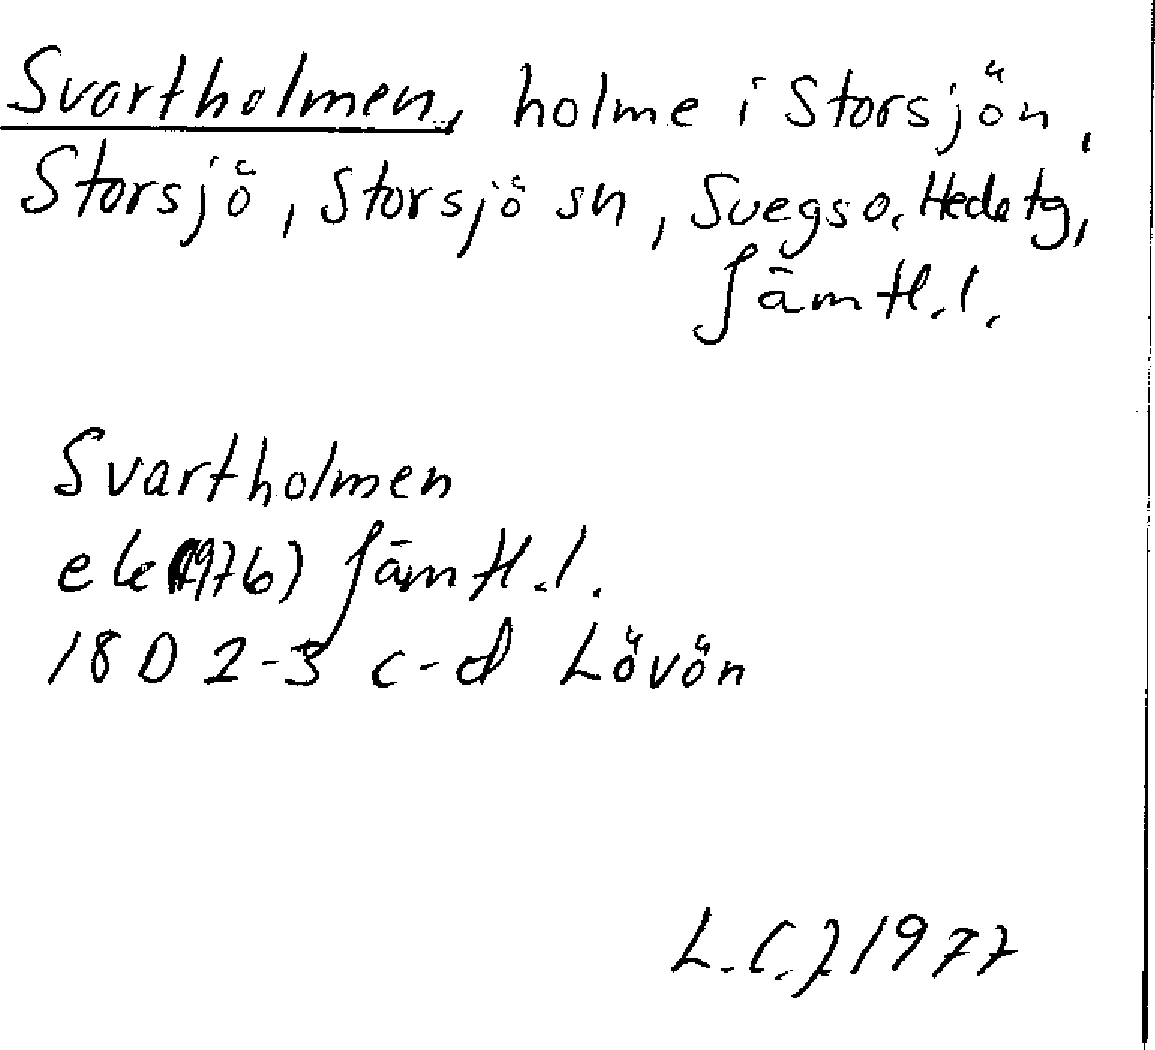 Svartholmen, holme i Storsjön,
Storsjö, Storsjö sn, Svegs o. Hede tg,
Jämtl. l.
Svartholmen
ek (1976) Jämtl. l.
18 D 2-3 c-d Lövön
L.C.J 1977